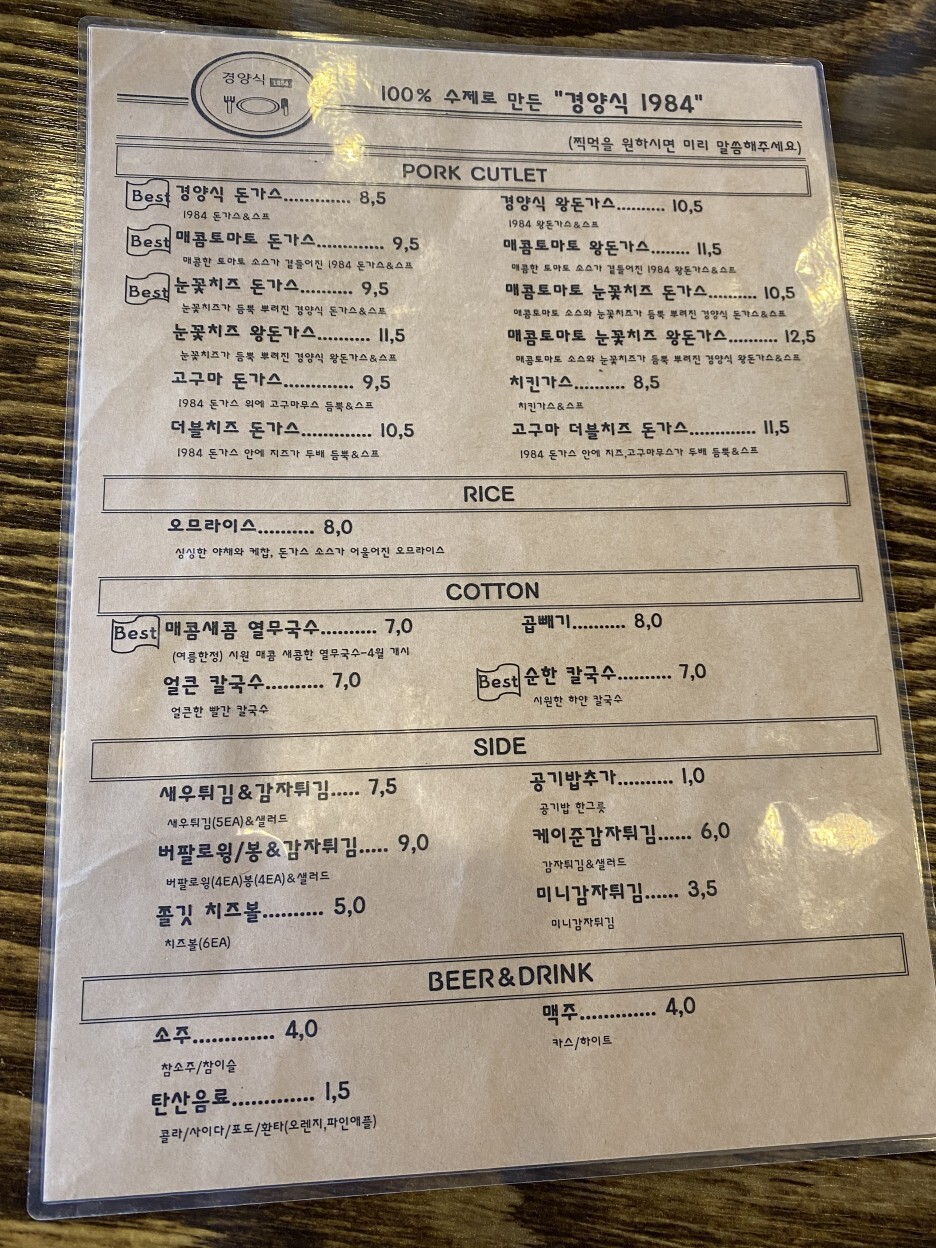 경양식 1984
100% 수제로 만든 "경양식 1984"
(찍먹을 원하시면 미리 말씀해주세요)
PORK CUTLET
Best 경양식 돈가스............. 8,5
1984 돈가스&스프
Best 매콤토마토 돈가스............. 9,5
매콤한 토마토 소스가 곁들어진 1984 돈가스&스프
Best 눈꽃치즈 돈가스............ 9,5
눈꽃치즈가 듬뿍 뿌려진 경양식 돈가스&스프
눈꽃치즈 왕돈가스.......... 11,5
눈꽃치즈가 듬뿍 뿌려진 경양식 왕돈가스&스프
고구마 돈가스............. 9,5
1984 돈가스 위에 고구마무스 듬뿍&스프
더블치즈 돈가스............. 10,5
1984 돈가스 안에 치즈가 두배 듬뿍&스프
경양식 왕돈가스.......... 10,5
1984 왕돈가스&스프
매콤토마토 왕돈가스........ 11,5
매콤한 토마토 소스가 곁들어진 1984 왕돈가스&스프
매콤토마토 눈꽃치즈 돈가스.......... 10,5
매콤토마토 소스와 눈꽃치즈가 듬뿍 뿌려진 경양식 돈가스&스프
매콤토마토 눈꽃치즈 왕돈가스.......... 12,5
매콤토마토 소스와 눈꽃치즈가 듬뿍 뿌려진 경양식 왕돈가스&스프
치킨가스.......... 8,5
치킨가스&스프
고구마 더블치즈 돈가스............. 11,5
1984 돈가스 안에 치즈,고구마무스가 두배 듬뿍&스프
RICE
오므라이스.......... 8,0
싱싱한 야채와 케찹, 돈가스 소스가 어울어진 오므라이스
COTTON
Best 매콤새콤 열무국수.......... 7,0
(여름한정) 시원 매콤 새콤한 열무국수-4월 개시
얼큰 칼국수.......... 7,0
얼큰한 빨간 칼국수
곱빼기.......... 8,0
Best 순한 칼국수.......... 7,0
시원한 하얀 칼국수
SIDE
새우튀김&감자튀김..... 7,5
새우튀김(5EA)&샐러드
버팔로윙/봉&감자튀김..... 9,0
버팔로윙(4EA)봉(4EA)&샐러드
쫄깃 치즈볼.......... 5,0
치즈볼(6EA)
공기밥추가.......... 1,0
공기밥 한그릇
케이준감자튀김...... 6,0
감자튀김&샐러드
미니감자튀김...... 3,5
미니감자튀김
BEER&DRINK
소주............. 4,0
참소주/참이슬
탄산음료............. 1,5
콜라/사이다/포도/환타(오렌지,파인애플)
맥주............. 4,0
카스/하이트